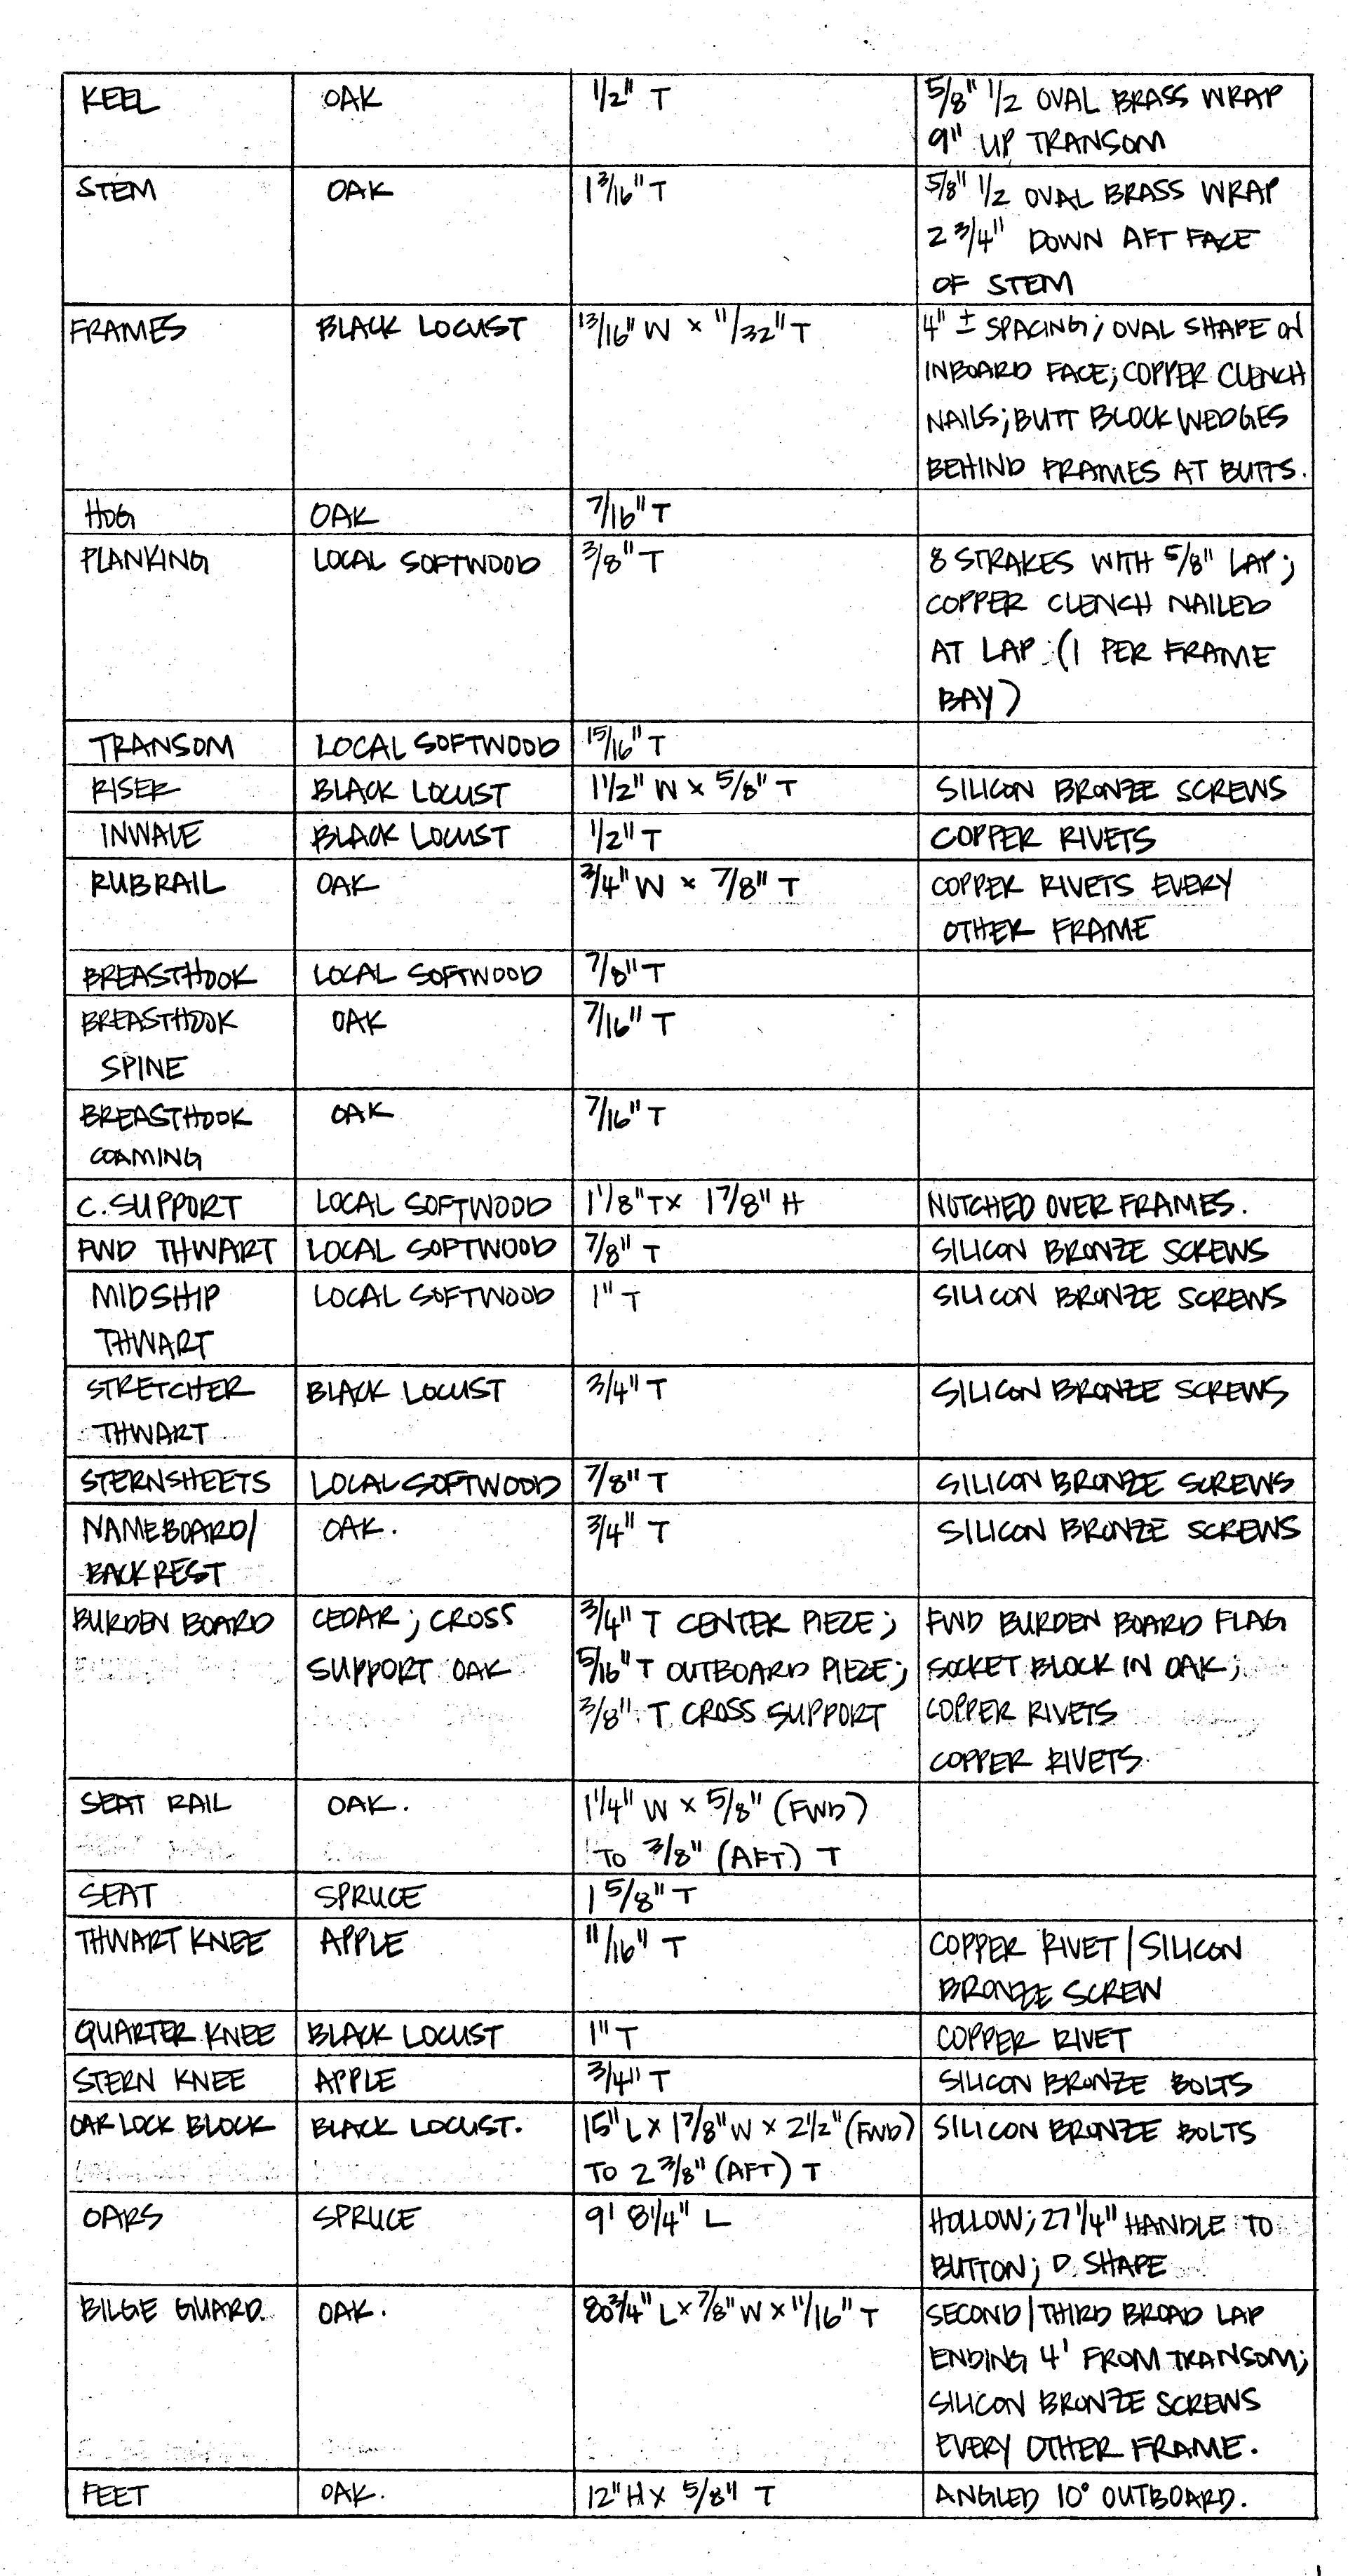 KEEL OAK 1/2" T 5/8" 1/2 OVAL BRASS WRAP
9" UP TRANSOM
STEM OAK 1 3/16" T 5/8" 1/2 OVAL BRASS WRAP
2 3/4" DOWN AFT FACE
OF STEM
FRAMES BLACK LOCUST 13/16" W x 11/32" T 4" ± SPACING; OVAL SHAPE ON
INBOARD FACE; COPPER CLENCH
NAILS; BUTT BLOCK WEDGES
BEHIND FRAMES AT BUTTS.
HOG OAK 7/16" T
PLANKING LOCAL SOFTWOOD 3/8" T 8 STRAKES WITH 5/8" LAP;
COPPER CLENCH NAILED
AT LAP (1 PER FRAME
BAY)
TRANSOM LOCAL SOFTWOOD 15/16" T
RISER BLACK LOCUST 1 1/2" W x 5/8" T SILICON BRONZE SCREWS
INWALE BLACK LOCUST 1/2" T COPPER RIVETS
RUBRAIL OAK 3/4" W x 7/8" T COPPER RIVETS EVERY
OTHER FRAME
BREASTHOOK LOCAL SOFTWOOD 7/8" T
BREASTHOOK OAK 7/16" T
SPINE
BREASTHOOK OAK 7/16" T
COAMING
C. SUPPORT LOCAL SOFTWOOD 1 1/8" T x 1 7/8" H NOTCHED OVER FRAMES.
FWD THWART LOCAL SOFTWOOD 7/8" T SILICON BRONZE SCREWS
MIDSHIP LOCAL SOFTWOOD 1" T SILICON BRONZE SCREWS
THWART
STRETCHER BLACK LOCUST 3/4" T SILICON BRONZE SCREWS
THWART
STERNSHEETS LOCAL SOFTWOOD 7/8" T SILICON BRONZE SCREWS
NAMEBOARD/ OAK. 3/4" T SILICON BRONZE SCREWS
BACKREST
BURDEN BOARD CEDAR; CROSS 3/4" T CENTER PIEZE; FWD BURDEN BOARD FLAG
SUPPORT OAK 5/16" T OUTBOARD PIEZE; SOCKET BLOCK IN OAK;
3/8" T CROSS SUPPORT COPPER RIVETS
COPPER RIVETS
SEAT RAIL OAK. 1 1/4" W x 5/8" (FWD)
TO 3/8" (AFT) T
SEAT SPRUCE 1 5/8" T
THWART KNEE APPLE 11/16" T COPPER RIVET/SILICON
BRONZE SCREW
QUARTER KNEE BLACK LOCUST 1" T COPPER RIVET
STERN KNEE APPLE 3/4" T SILICON BRONZE BOLTS
OAR LOCK BLOCK BLACK LOCUST. 15" L x 1 7/8" W x 2 1/2" (FWD) SILICON BRONZE BOLTS
TO 2 3/8" (AFT) T
OARS SPRUCE 9' 8 1/4" L HOLLOW; 27 1/4" HANDLE TO
BUTTON; D SHAPE
BILGE GUARD. OAK. 80 3/4" L x 7/8" W x 11/16" T SECOND/THIRD BROAD LAP
ENDING 4' FROM TRANSOM;
SILICON BRONZE SCREWS
EVERY OTHER FRAME.
FEET OAK. 12" H x 5/8" T ANGLED 10° OUTBOARD.